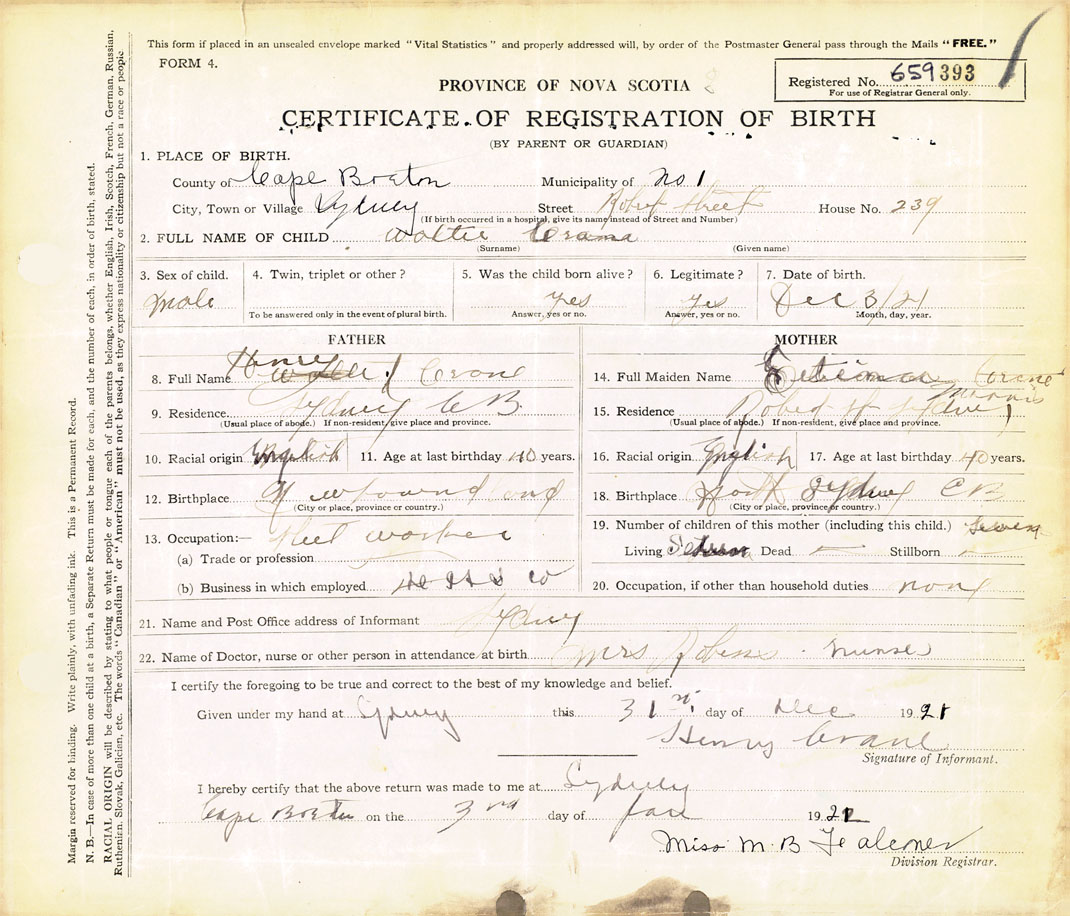 This form if placed in an unsealed envelope marked "Vital Statistics" and properly addressed will, by order of the Postmaster General pass through the Mails "FREE."
FORM 4.
PROVINCE OF NOVA SCOTIA
Registered No. 659393
For use of Registrar General only.
CERTIFICATE OF REGISTRATION OF BIRTH
(BY PARENT OR GUARDIAN)
1. PLACE OF BIRTH.
County of Cape Breton Municipality of No 1
City, Town or Village Sydney Street Robert Street House No. 239
(If birth occurred in a hospital, give its name instead of Street and Number)
2. FULL NAME OF CHILD
(Surname) (Given name)
3. Sex of child. 4. Twin, triplet or other? 5. Was the child born alive? 6. Legitimate? 7. Date of birth.
Male yes Yes Dec 3/21
To be answered only in the event of plural birth. Answer, yes or no. Answer, yes or no. Month, day, year.
FATHER
8. Full Name Henry Crane
9. Residence Sydney C B.
(Usual place of abode.) If non-resident, give place and province.
10. Racial origin English 11. Age at last birthday 40 years.
12. Birthplace Newfoundland
(City or place, province or country.)
13. Occupation:— Steel worker
(a) Trade or profession
(b) Business in which employed Co
MOTHER
14. Full Maiden Name Morris
15. Residence Robert St Sydney
(Usual place of abode.) If non-resident, give place and province.
16. Racial origin English 17. Age at last birthday 40 years.
18. Birthplace North Sydney C B
(City or place, province or country.)
19. Number of children of this mother (including this child.) Seven
Living Dead — Stillborn —
20. Occupation, if other than household duties none
21. Name and Post Office address of Informant Sydney
22. Name of Doctor, nurse or other person in attendance at birth Mrs Nurse
I certify the foregoing to be true and correct to the best of my knowledge and belief.
Given under my hand at Sydney this 31 day of Dec 1921
Henry Crane
Signature of Informant.
I hereby certify that the above return was made to me at Sydney
Cape Breton on the 3rd day of Jan 1922
Miss M. B Falconer
Division Registrar.
Margin reserved for binding. Write plainly, with unfading ink. This is a Permanent Record.
N. B.—In case of more than one child at a birth, a Separate Return must be made for each, and the number of each, in order of birth, stated.
RACIAL ORIGIN will be described by stating to what people or tongue each of the parents belongs, whether English, Irish, Scotch, French, German, Russian,
Ruthenian, Slovak, Galician, etc. The words "Canadian" or "American" must not be used, as they express nationality or citizenship but not a race or people.